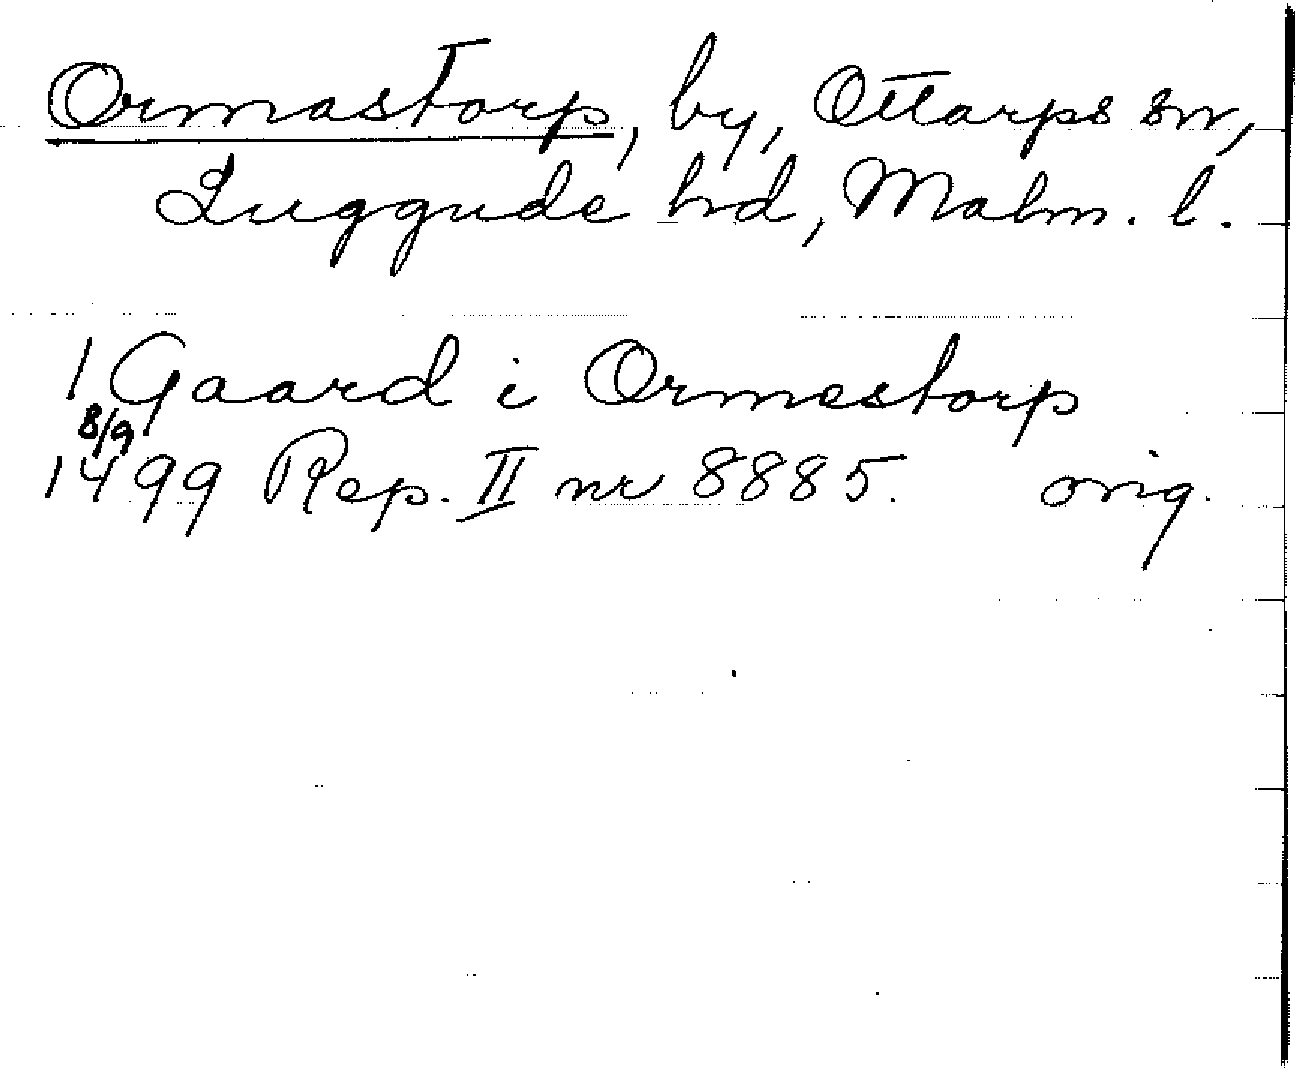 Ormastorp, by, Ottarps sn,
Luggude hd, Malm. l.
1 Gaard i Ormestorp
8/9
1499 Rep. II nr 8885. orig.